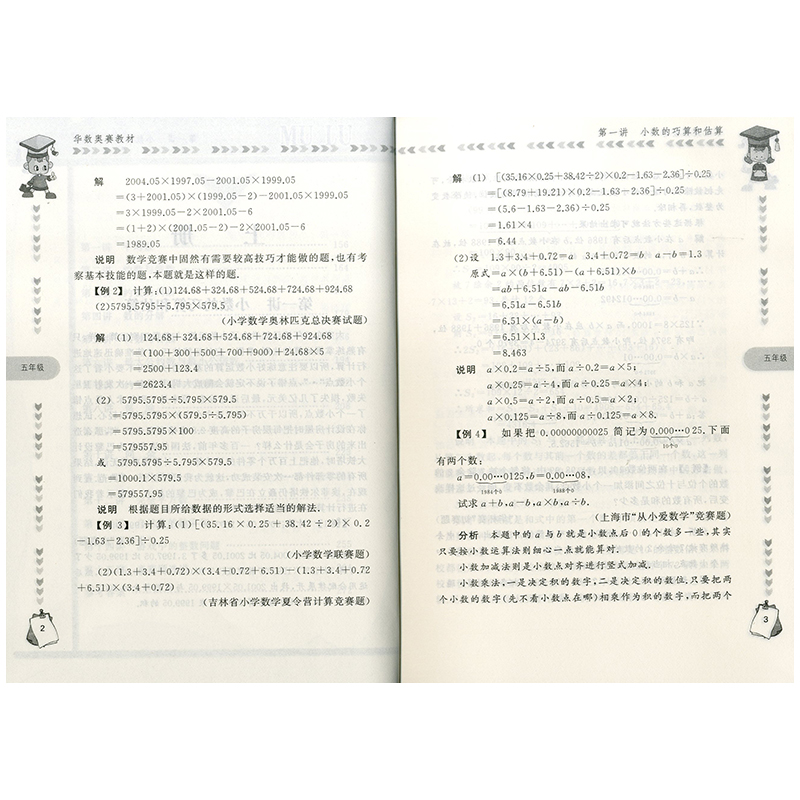 华数奥赛教材
解 2004.05×1997.05-2001.05×1999.05
=(3+2001.05)×(1999.05-2)-2001.05×1999.05
=3×1999.05-2×2001.05-6
=(1+2)×(2001.05-2)-2×2001.05-6
=1989.05
说明 数学竞赛中固然有需要较高技巧才能做的题,也有考
察基本技能的题,本题就是这样的题.
【例2】 计算:(1)124.68+324.68+524.68+724.68+924.68
(2)5795.5795÷5.795×579.5
(小学数学奥林匹克总决赛试题)
解 (1) 124.68+324.68+524.68+724.68+924.68
=(100+300+500+700+900)+24.68×5
=2500+123.4
=2623.4
(2) 5795.5795÷5.795×579.5
=5795.5795×(579.5÷5.795)
=5795.5795×100
=579557.95
或 5795.5795÷5.795×579.5
=1000.1×579.5
=579557.95
说明 根据题目所给数据的形式选择适当的解法.
【例 3】 计算:(1)[(35.16×0.25+38.42÷2)×0.2
-1.63-2.36]÷0.25
(小学数学联赛题)
(2)(1.3+3.4+0.72)×(3.4+0.72+6.51)-(1.3+3.4+0.72
+6.51)×(3.4+0.72)
(吉林省小学数学夏令营计算竞赛题)
五年级
2
第一讲 小数的巧算和估算
解 (1) [(35.16×0.25+38.42÷2)×0.2-1.63-2.36]÷0.25
=[(8.79+19.21)×0.2-1.63-2.36]÷0.25
=(5.6-1.63-2.36)÷0.25
=1.61×4
=6.44
(2)设 1.3+3.4+0.72=a 3.4+0.72=b a-b=1.3
原式=a×(b+6.51)-(a+6.51)×b
=ab+6.51a-ab-6.51b
=6.51a-6.51b
=6.51×(a-b)
=6.51×1.3
=8.463
说明 a×0.2=a÷5,而a÷0.2=a×5;
a×0.25=a÷4,而a÷0.25=a×4;
a×0.5=a÷2,而a÷0.5=a×2;
a×0.125=a÷8,而a÷0.125=a×8.
【例4】 如果把 0.00000000025 简记为 0.000…0 25.下面
10个0
有两个数:
a=0.00…0125,b=0.00…08.
1984个0 1988个0
试求 a+b,a-b,a×b,a÷b.
(上海市“从小爱数学”竞赛题)
分析 本题中的 a 与 b 就是小数点后 0 的个数多一些,其实
只要按小数运算法则细心一点就能算对.
小数加减法则是小数点对齐进行竖式加减.
小数乘法,一是决定积的数字,二是决定积的数位.只要把两
个小数的数字(先不看小数点在哪)相乘作为积的数字,而把两个
五年级
3